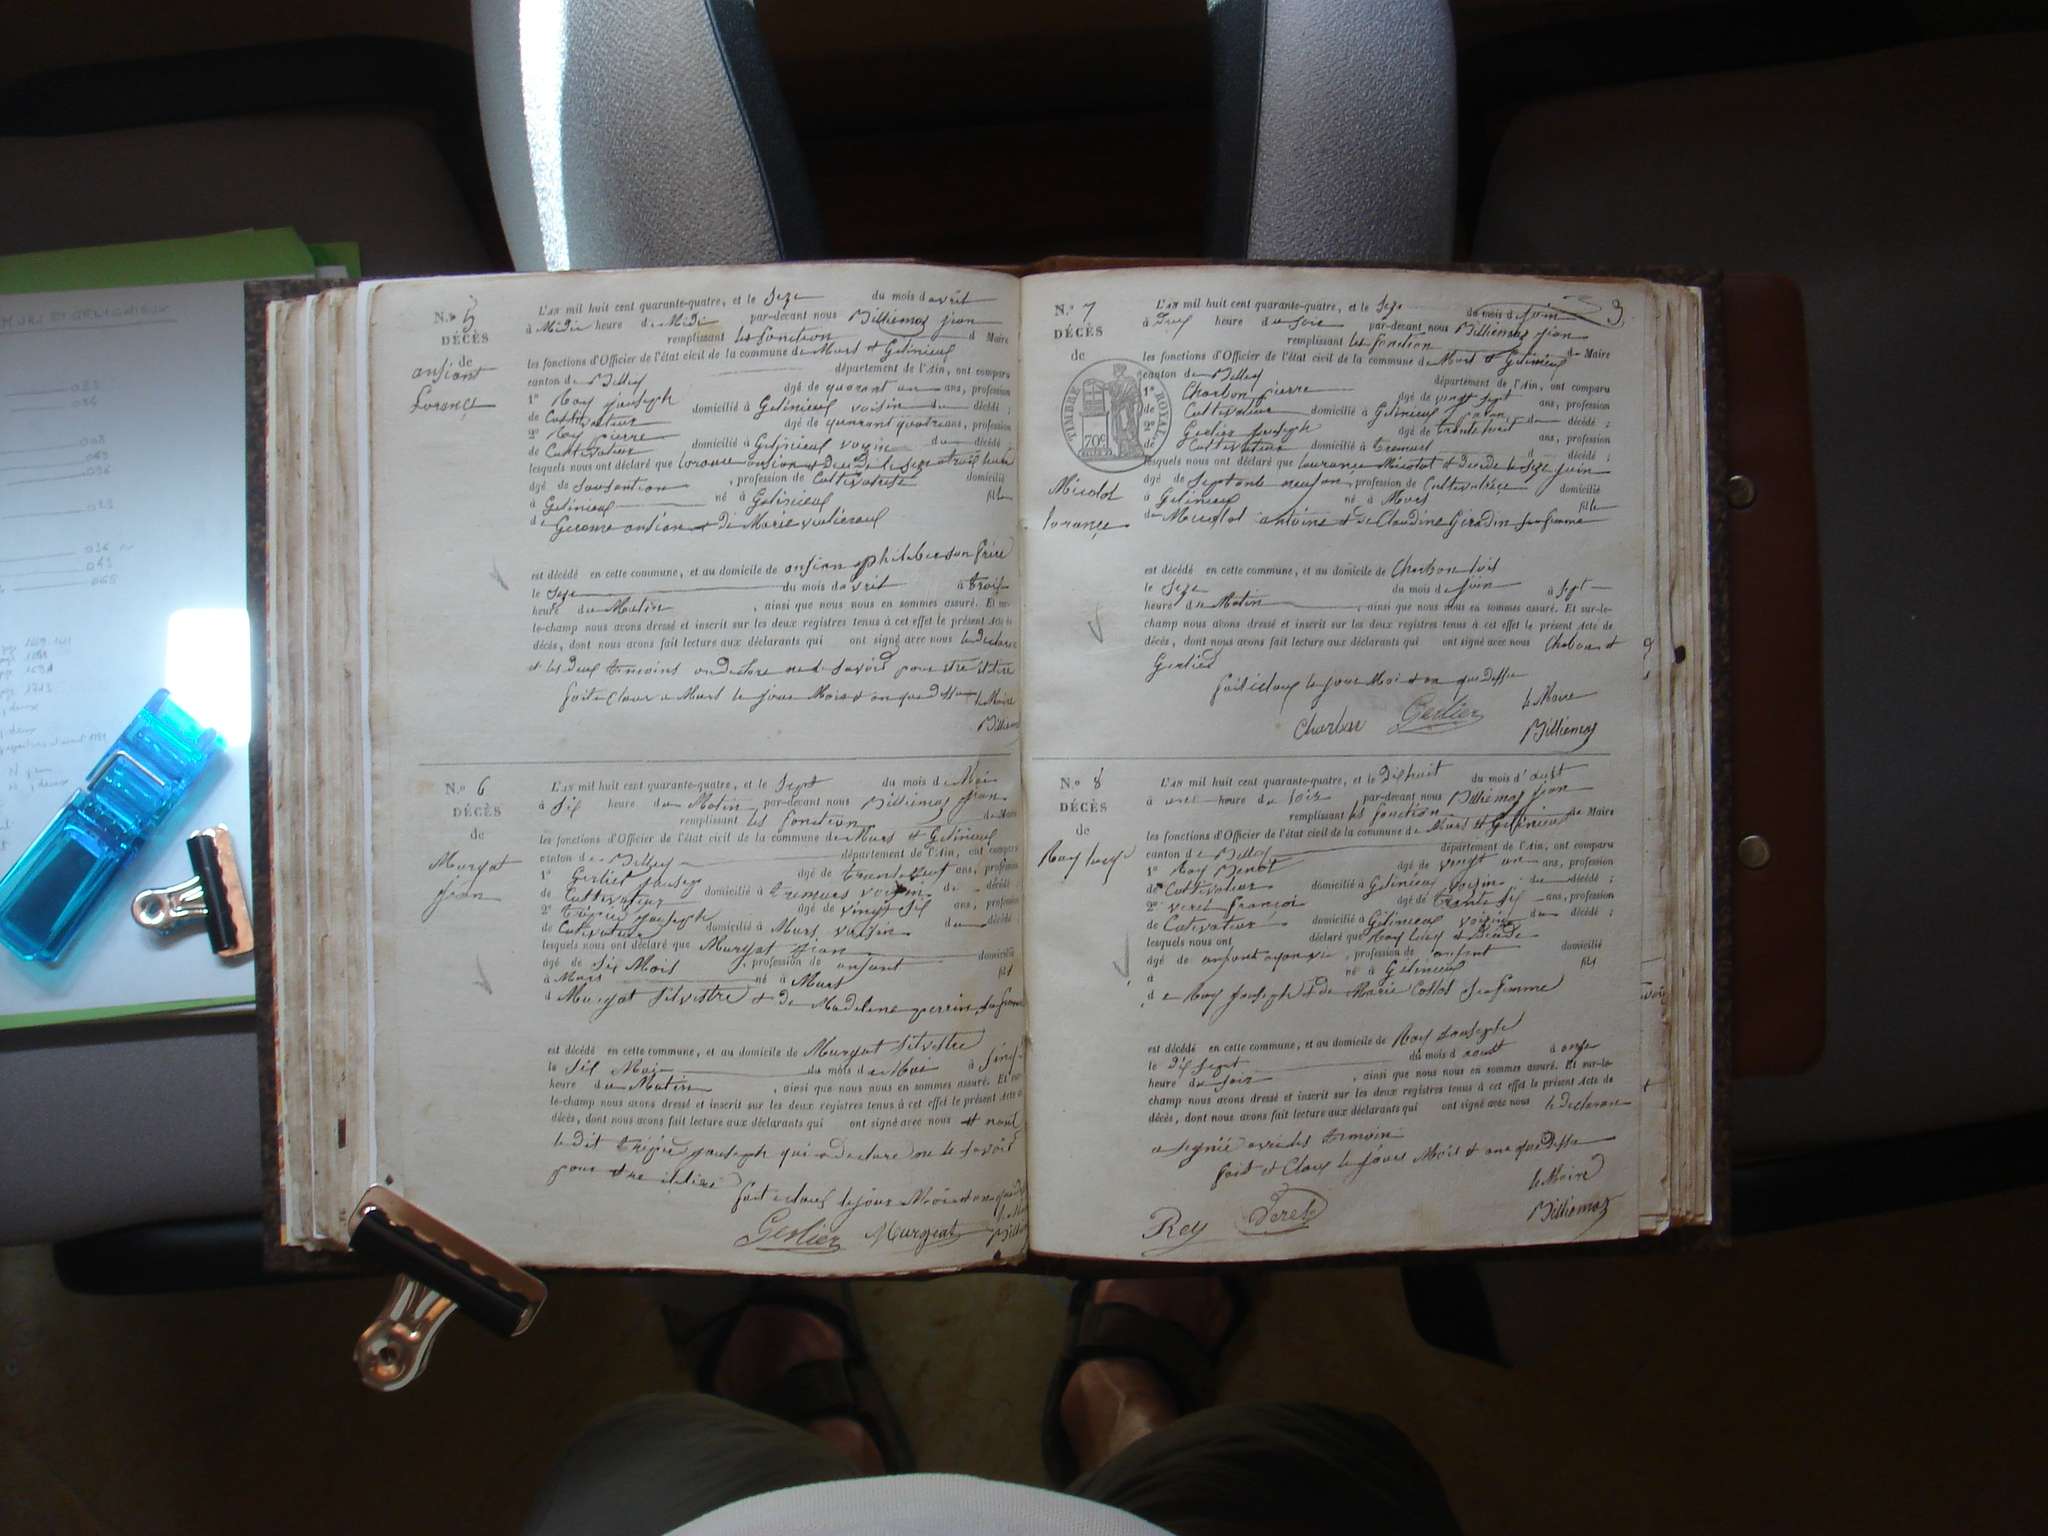 N.º 5
DÉCÈS
de
ansiant
Lorance
L'AN mil huit cent quarante-quatre, et le Seze du mois d avrit
à Midi heure de Midi par-devant nous Billiemaz jean
remplissant les fonction d Maire
les fonctions d'Officier de l'état civil de la commune de Murs et Gelinieux
canton de Belley département de l'Ain, ont comparu
1º Roy Jauseph âgé de quarant un ans, profession
de Cultivateur domicilié à Gelinieux voisin du décédé ;
2º Roy pierre âgé de quarant quatre ans, profession
de Cultivateur domicilié à Gelinieux voisin du décédé ;
lesquels nous ont déclaré que lorance ansian
âgé de soisantion , profession de Cultivatrise domicilié
à Gelinieux né à Gelinieux fille
de Gerome ansian et de Marie
est décédé en cette commune, et au domicile de ansian philiber son frère
le Seze du mois d avrit à trois
heure du Matin , ainsi que nous nous en sommes assuré. Et sur-
le-champ nous avons dressé et inscrit sur les deux registres tenus à cet effet le présent Acte de
décès, dont nous avons fait lecture aux déclarants qui ont signé avec nous le declaran
et les deux temoins on declare ne le savoir pour etre iletere
fait et Claux a Murs le jour Mois et an que dessu le Maire
Billiemaz
N.º 6
DÉCÈS
de
Murgat
jean
L'AN mil huit cent quarante-quatre, et le Sept du mois de Mai
à Six heure du Matin par-devant nous Billiemaz jean
remplissant les fonction de Maire
les fonctions d'Officier de l'état civil de la commune de Murs et Gelinieux
canton de Belley département de l'Ain, ont comparu
1º Gerlier Jausep âgé de trante huit ans, profession
de Cultivateur domicilié à tremurs voisin du décédé
2º Jauseph âgé de vingt six ans, profession
de Cultivateur domicilié à Murs voisin du décédé
lesquels nous ont déclaré que Murgat jean
âgé de six Mois , profession de anfant domicilié
à Murs né à Murs fils
d Murgat Silvestre et de Madelene perrin sa femme
est décédé en cette commune, et au domicile de Murgat Silvestre
le Six Mai du mois de Mai à sinq
heure du Matin , ainsi que nous nous en sommes assuré. Et sur-
le-champ nous avons dressé et inscrit sur les deux registres tenus à cet effet le présent Acte de
décès, dont nous avons fait lecture aux déclarants qui ont signé avec nous et non
le dit Jauseph qui a declare ne le savoir
pour etre iletere
fait et claux le jour Mois et an que dessu
Gerlier Murgeat Billiemaz
3
N.º 7
DÉCÈS
de
TIMBRE ROYAL
70 c
Micolot
lorance
L'AN mil huit cent quarante-quatre, et le Seze du mois de juin
à Deux heure du soir par-devant nous Billiemaz jean
remplissant les fonction de Maire
les fonctions d'Officier de l'état civil de la commune de Murs et Gelinieux
canton de Belley département de l'Ain, ont comparu
1º Charbon pierre âgé de vingt sept ans, profession
de Cultivateur domicilié à Gelinieux du décédé ;
2º Gerlier Jauseph âgé de trante huit ans, profession
de Cultivateur domicilié à tremurs d décédé ;
lesquels nous ont déclaré que laurance Micolot et decede le seze juin
âgé de septante neuf an , profession de Cultivatrice domicilié
à Gelinieux né à Murs fille
de Micolot antoine et de Claudine Giradin sa femme
est décédé en cette commune, et au domicile de Charbon
le Seze du mois de juin à sept
heure du Matin , ainsi que nous nous en sommes assuré. Et sur-le-
champ nous avons dressé et inscrit sur les deux registres tenus à cet effet le présent Acte de
décès, dont nous avons fait lecture aux déclarants qui ont signé avec nous Chabon et
Gerlier
fait et claux le jour Moi et an que dessu
le Maire
Charbon Gerlier Billiemaz
N.º 8
DÉCÈS
de
Roy lucy
L'AN mil huit cent quarante-quatre, et le Dishuit du mois d'aust
à une heure du soir par-devant nous Billiemaz jean
remplissant les fonction de Maire
les fonctions d'Officier de l'état civil de la commune de Murs et Gelinieux
canton de Belley département de l'Ain, ont comparu
1º Roy Benoit âgé de vingt un ans, profession
de Cultivateur domicilié à Gelinieux voisin du décédé ;
2º veret françoi âgé de trante six ans, profession
de Cultivateur domicilié à Gelinieux voisin du décédé ;
lesquels nous ont déclaré que Roy lucy et decede
âgé de , profession de anfant domicilié
à né à Gelinieux fils
de Roy Jauseph et de Marie Costes sa femme
est décédé en cette commune, et au domicile de Roy Jauseph
le Dix sept du mois d aout à onze
heure du soir , ainsi que nous nous en sommes assuré. Et sur-le-
champ nous avons dressé et inscrit sur les deux registres tenus à cet effet le présent Acte de
décès, dont nous avons fait lecture aux déclarants qui ont signé avec nous le declaran
a signé avec les temoin
fait et Claux le jour Mois et an que dessu
le Maire
Rey Veret Billiemaz